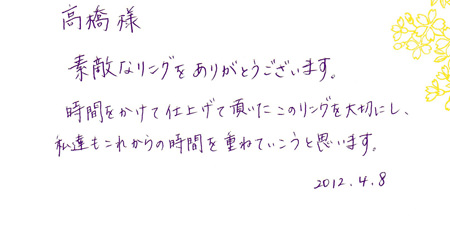 高橋様
素敵なリングをありがとうございます。
時間をかけて仕上げて頂いたこのリングを大切にし、
私達もこれからの時間を重ねていこうと思います。
2012.4.8